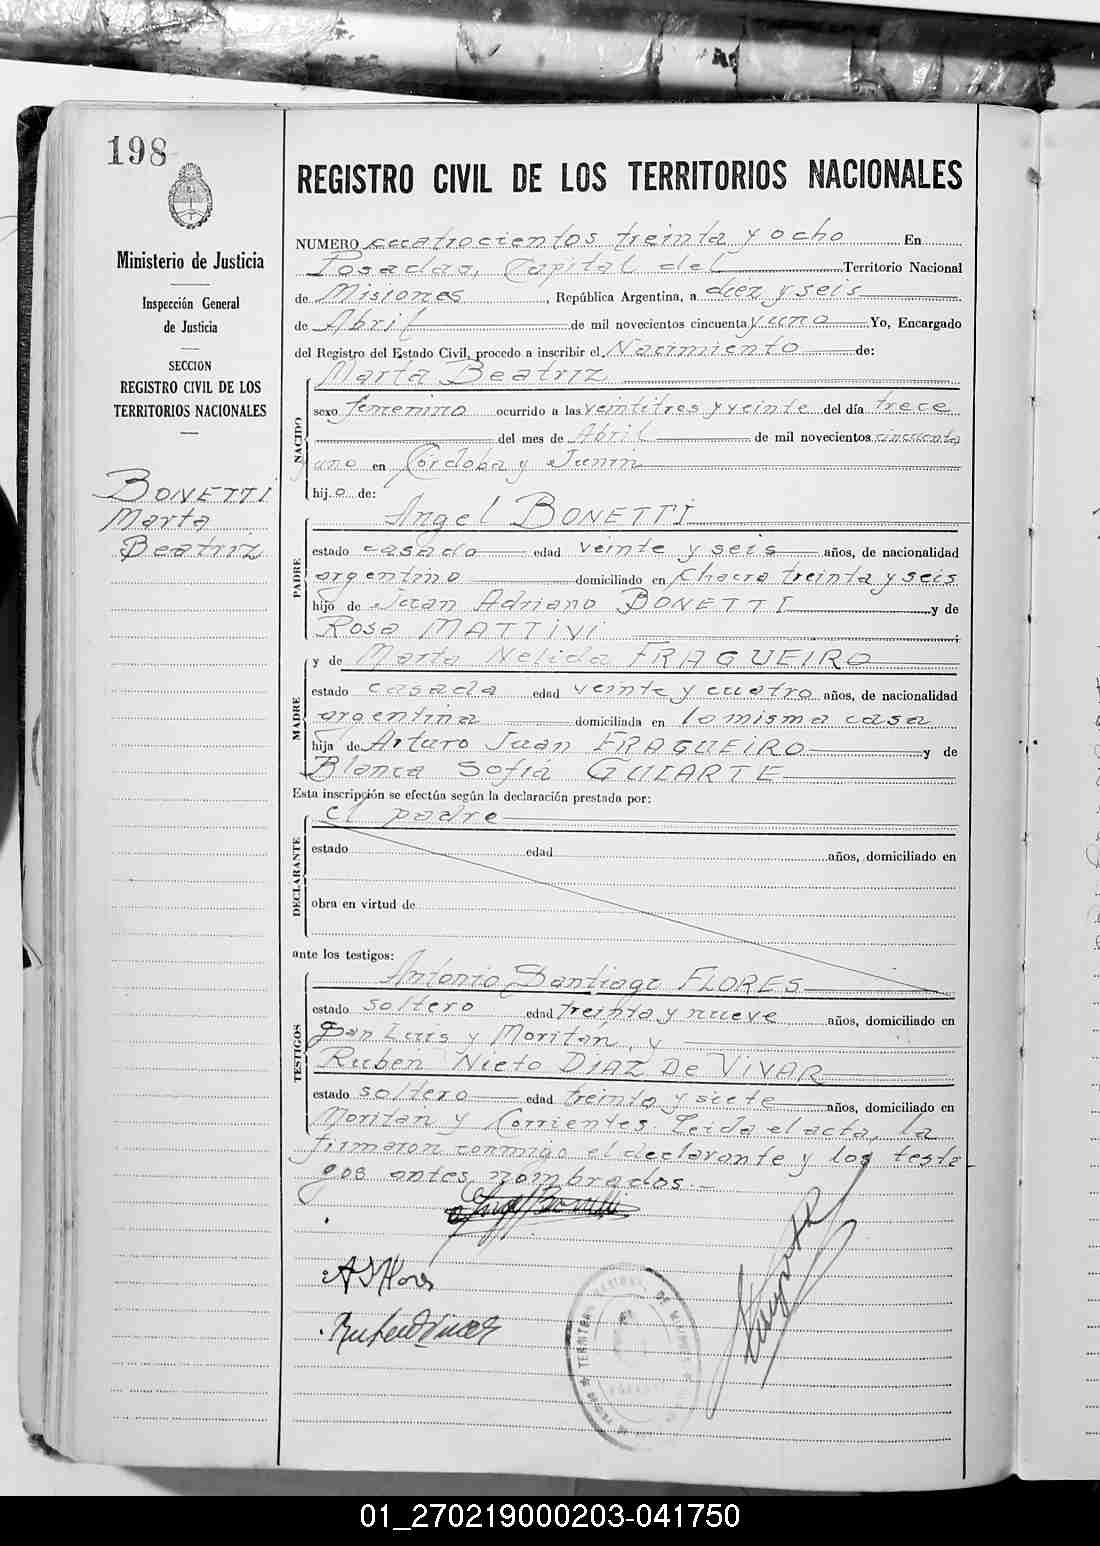 198
Ministerio de Justicia
Inspección General
de Justicia
SECCION
REGISTRO CIVIL DE LOS
TERRITORIOS NACIONALES
BONETTI
Marta
Beatriz
REGISTRO CIVIL DE LOS TERRITORIOS NACIONALES
NUMERO cuatrocientos treinta y ocho En
Posadas, Capital del Territorio Nacional
de Misiones, República Argentina, a diez y seis
de Abril de mil novecientos cincuenta y uno Yo, Encargado
del Registro del Estado Civil, procedo a inscribir el Nacimiento de:
NACIDO
Marta Beatriz
sexo femenino ocurrido a las veintitres y veinte del día trece
del mes de Abril de mil novecientos cincuenta
y uno en Córdoba y Junín
hijo de:
PADRE
Angel BONETTI
estado casado edad veinte y seis años, de nacionalidad
argentino domiciliado en Chacra treinta y seis
hijo de Juan Adriano BONETTI y de
Rosa MATTIVI ;
MADRE
y de Marta Nelida FRAGUEIRO
estado casada edad veinte y cuatro años, de nacionalidad
argentina domiciliada en la misma casa
hija de Arturo Juan FRAGUEIRO y de
Blanca Sofía GULARTE
Esta inscripción se efectúa según la declaración prestada por:
DECLARANTE
el padre
estado edad años, domiciliado en
obra en virtud de
ante los testigos:
TESTIGOS
Antonio Santiago FLORES
estado soltero edad treinta y nueve años, domiciliado en
San Luis y Moritán, y
Ruben Nieto DIAZ De VIVAR
estado soltero edad treinta y siete años, domiciliado en
Moritán y Corrientes. Leida el acta, la
firmaron conmigo el declarante y los testi-
gos antes nombrados.-
Angel Bonetti
A S Flores
01_270219000203-041750